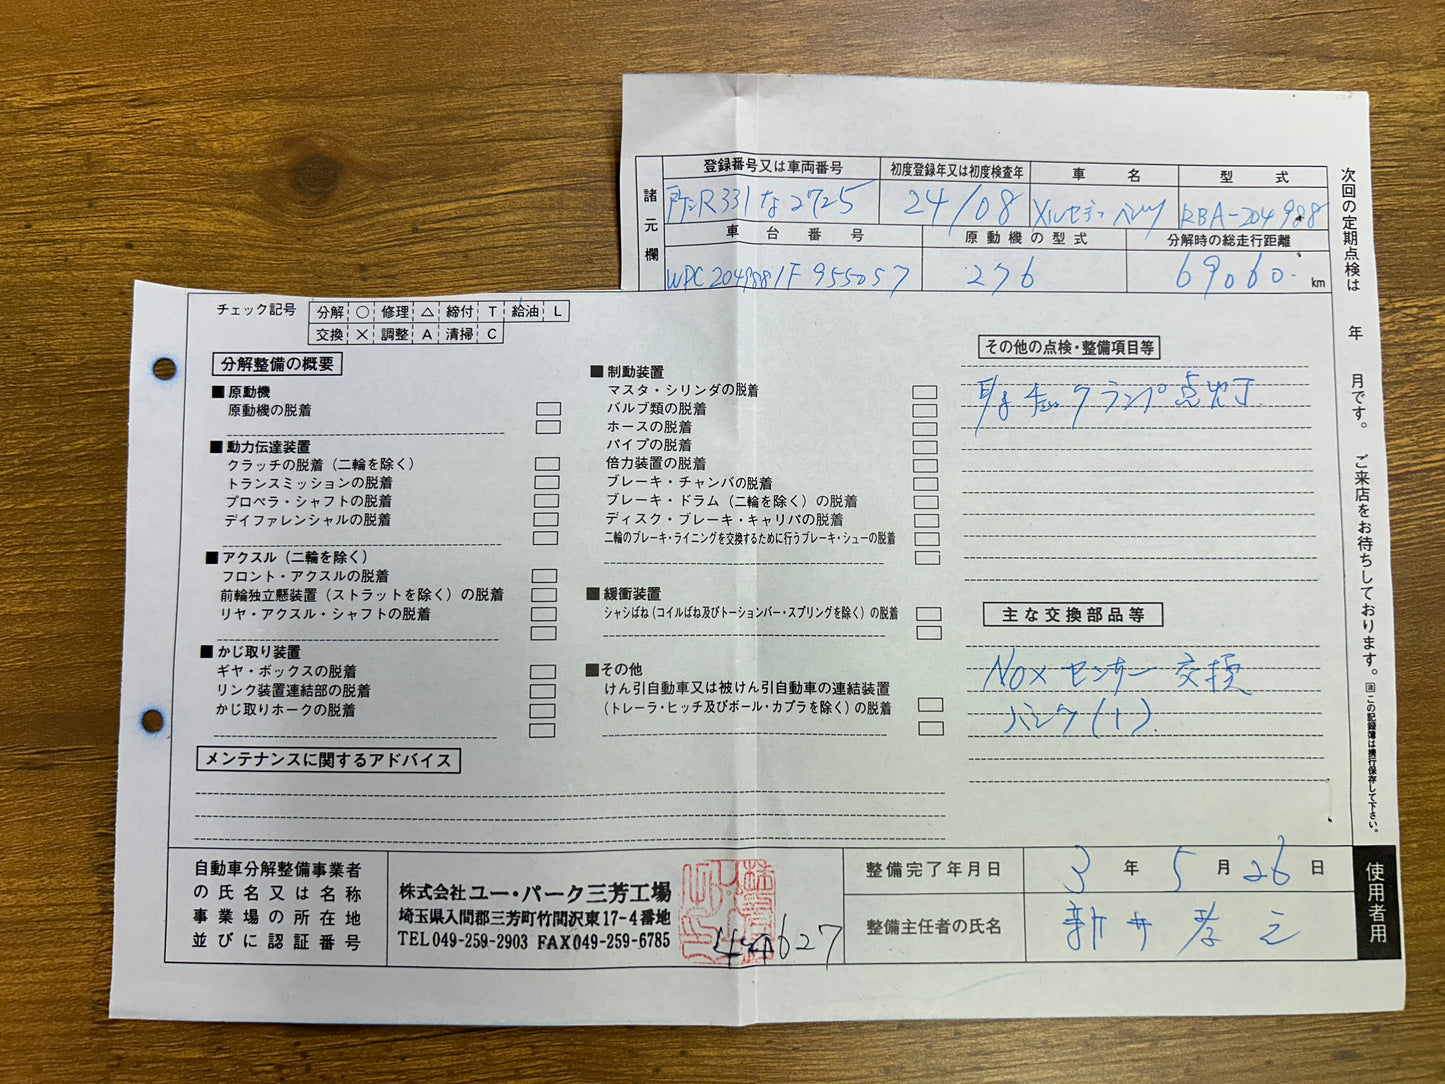 諸元欄
登録番号又は車両番号
初度登録年又は初度検査年
車名
型式
331な2725
24/08
メルセデスベンツ
RBA-204988
車台番号
原動機の型式
分解時の総走行距離
WDC2049881F955057
276
69060
km
次回の定期点検は 年 月です。ご来店をお待ちしております。
この記録簿は携行保存して下さい。
使用者用
チェック記号
分解 ○ 修理 △ 締付 T 給油 L
交換 × 調整 A 清掃 C
分解整備の概要
■原動機
原動機の脱着
■動力伝達装置
クラッチの脱着（二輪を除く）
トランスミッションの脱着
プロペラ・シャフトの脱着
デイファレンシャルの脱着
■アクスル（二輪を除く）
フロント・アクスルの脱着
前輪独立懸装置（ストラットを除く）の脱着
リヤ・アクスル・シャフトの脱着
■かじ取り装置
ギヤ・ボックスの脱着
リンク装置連結部の脱着
かじ取りホークの脱着
■制動装置
マスタ・シリンダの脱着
バルブ類の脱着
ホースの脱着
パイプの脱着
倍力装置の脱着
ブレーキ・チャンバの脱着
ブレーキ・ドラム（二輪を除く）の脱着
ディスク・ブレーキ・キャリパの脱着
二輪のブレーキ・ライニングを交換するために行うブレーキ・シューの脱着
■緩衝装置
シャシばね（コイルばね及びトーションバー・スプリングを除く）の脱着
■その他
けん引自動車又は被けん引自動車の連結装置
（トレーラ・ヒッチ及びボール・カプラを除く）の脱着
その他の点検・整備項目等
チェックランプ点灯
主な交換部品等
NOxセンサー交換
バンク(1)
メンテナンスに関するアドバイス
自動車分解整備事業者
の氏名又は名称
事業場の所在地
並びに認証番号
株式会社ユー・パーク三芳工場
埼玉県入間郡三芳町竹間沢東17-4番地
TEL049-259-2903 FAX049-259-6785
整備完了年月日
3年5月26日
整備主任者の氏名
新井孝之